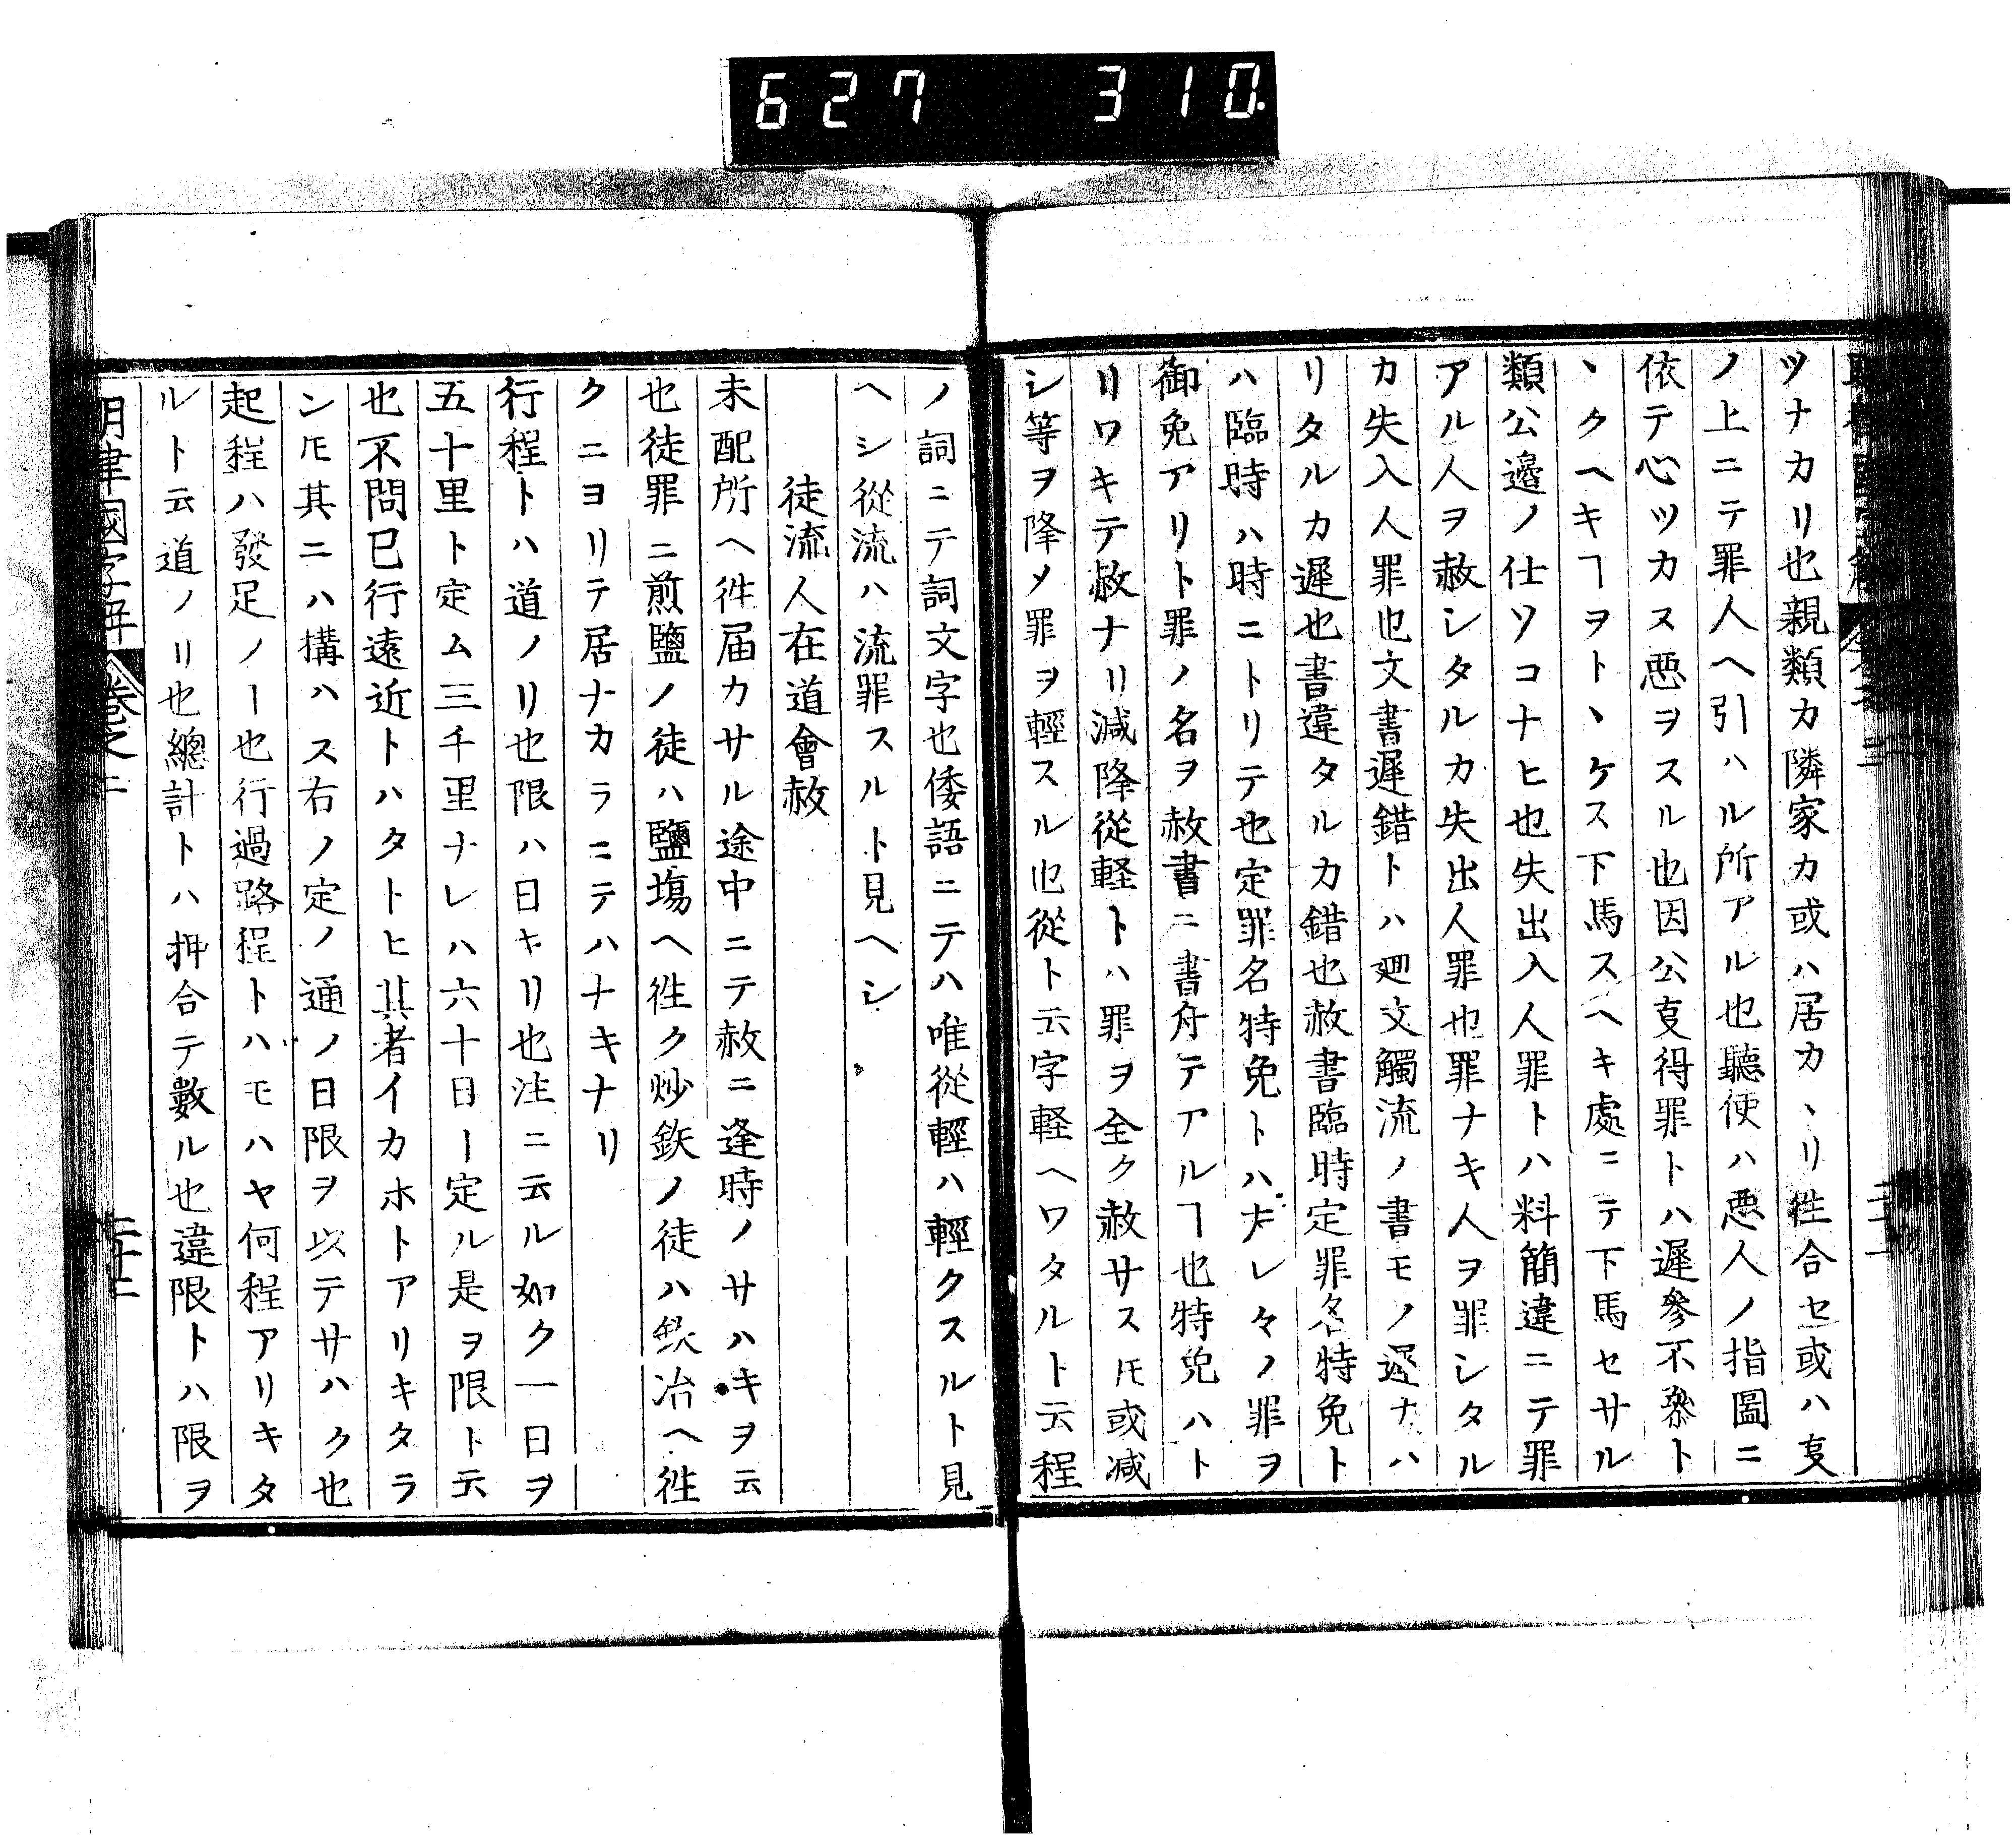 627 310
ツナカリ也親類カ隣家カ或ハ居カヽリ徃合セ或ハ㕝
ノ上ニテ罪人ヘ引ハル所アル也聽使ハ悪人ノ指圖ニ
依テ心ツカス悪ヲスル也因公㕝得罪トハ遲參不參ト
ヽクヘキヿヲトヽケス下馬スヘキ處ニテ下馬セサル
類公邉ノ仕ソコナヒ也失出入人罪トハ料簡違ニテ罪
アル人ヲ赦シタルカ失出人罪也罪ナキ人ヲ罪シタル
カ失入人罪也文書遲錯トハ廻文觸流ノ書モノ遲ナハ
リタルカ遲也書違タルカ錯也赦書臨時定罪名特免ト
ハ臨時ハ時ニトリテ也定罪名特免トハナレ々ノ罪ヲ
御免アリト罪ノ名ヲ赦書ニ書舟テアルヿ也特免ハト
リワキテ赦ナリ減降從軽トハ罪ヲ全ク赦サスㇳモ或减
シ等ヲ降メ罪ヲ輕スル也從ト云字軽ヘワタルト云程
ノ詞ニテ詞文字也倭語ニテハ唯從輕ハ輕クスルト見
ヘシ從流ハ流罪スルト見ヘシ
徒流人在道會赦
未配所ヘ徃届カサル途中ニテ赦ニ逢時ノサハキヲ云
也徒罪ニ煎鹽ノ徒ハ鹽塲ヘ徃ク炒鉄ノ徒ハ鉄冶ヘ徃
クニヨリテ居ナカラニテハナキナリ
行程トハ道ノリ也限ハ日キリ也注ニ云ル如ク一日ヲ
五十里ト定ム三千里ナレハ六十日ー定ル是ヲ限ト云
也不問已行遠近トハタトヒ其者イカホトアリキタラ
ンㇳモ其ニハ構ハス右ノ定ノ通ノ日限ヲ以テサハク也
起程ハ發足ノー也行過路程トハモハヤ何程アリキタ
ルト云道ノリ也總計トハ押合テ數ル也違限トハ限ヲ
明律國字 卷之二
二十二